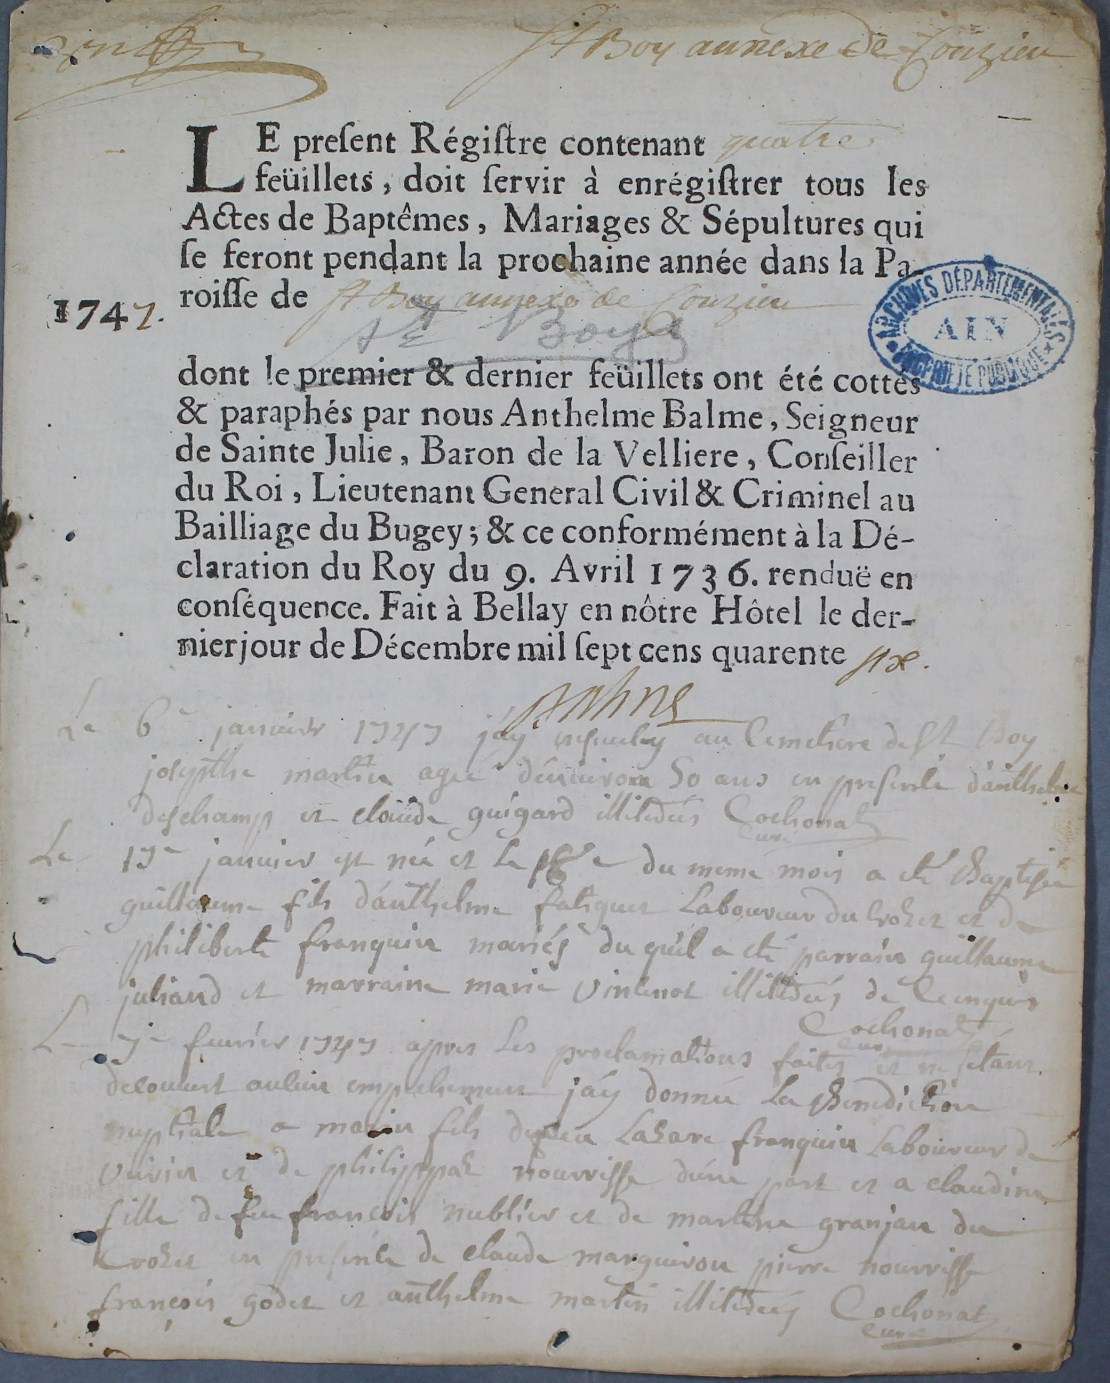 St Boy annexe de Conzieu
LE preſent Régiſtre contenant quatre
feüillets, doit ſervir à enrégiſtrer tous les
Actes de Baptêmes, Mariages & Sépultures qui
ſe feront pendant la prochaine année dans la Pa-
1747. roiſſe de St Boy annexe de Conzieu
St Boys
ARCHIVES DÉPARTEMENTALES
AIN
PROPRIÉTÉ PUBLIQUE
dont le premier & dernier feüillets ont été cottés
& paraphés par nous Anthelme Balme, Seigneur
de Sainte Julie, Baron de la Velliere, Conſeiller
du Roi, Lieutenant General Civil & Criminel au
Bailliage du Bugey; & ce conformément à la Dé-
claration du Roy du 9. Avril 1736. renduë en
conſéquence. Fait à Bellay en nôtre Hôtel le der-
nier jour de Décembre mil ſept cens quarente six.
Balme
Le 6e janvier 1747 j'ay au Cemetiere de St Boy
martin agée d'environ 50 ans en presence d'anthelme
deschamp et claude guigard illiterés Cochonat
curé
Le 17e janvier est né et le du meme mois a eté Baptisé
guillaume fils d'anthelme Laboureur du Crozet et de
philiberte franquin mariés du quel a eté parrain guillaume
juliand et marraine marie illiterés de
Cochonat
curé
Le 7e fevrier 1747 apres les proclamations faites et ne setant
decouvert aucun empechement j'ay donné La Benediction
nuptiale a fils de feu Lazare franquin Laboureur de
et de nourrisse d'une part et a claudine
fille de feu francois nublier et de granjan du
Crozet en presence de claude marguiron pierre nourrisse
françois godet et anthelme martin illiterés Cochonat
curé